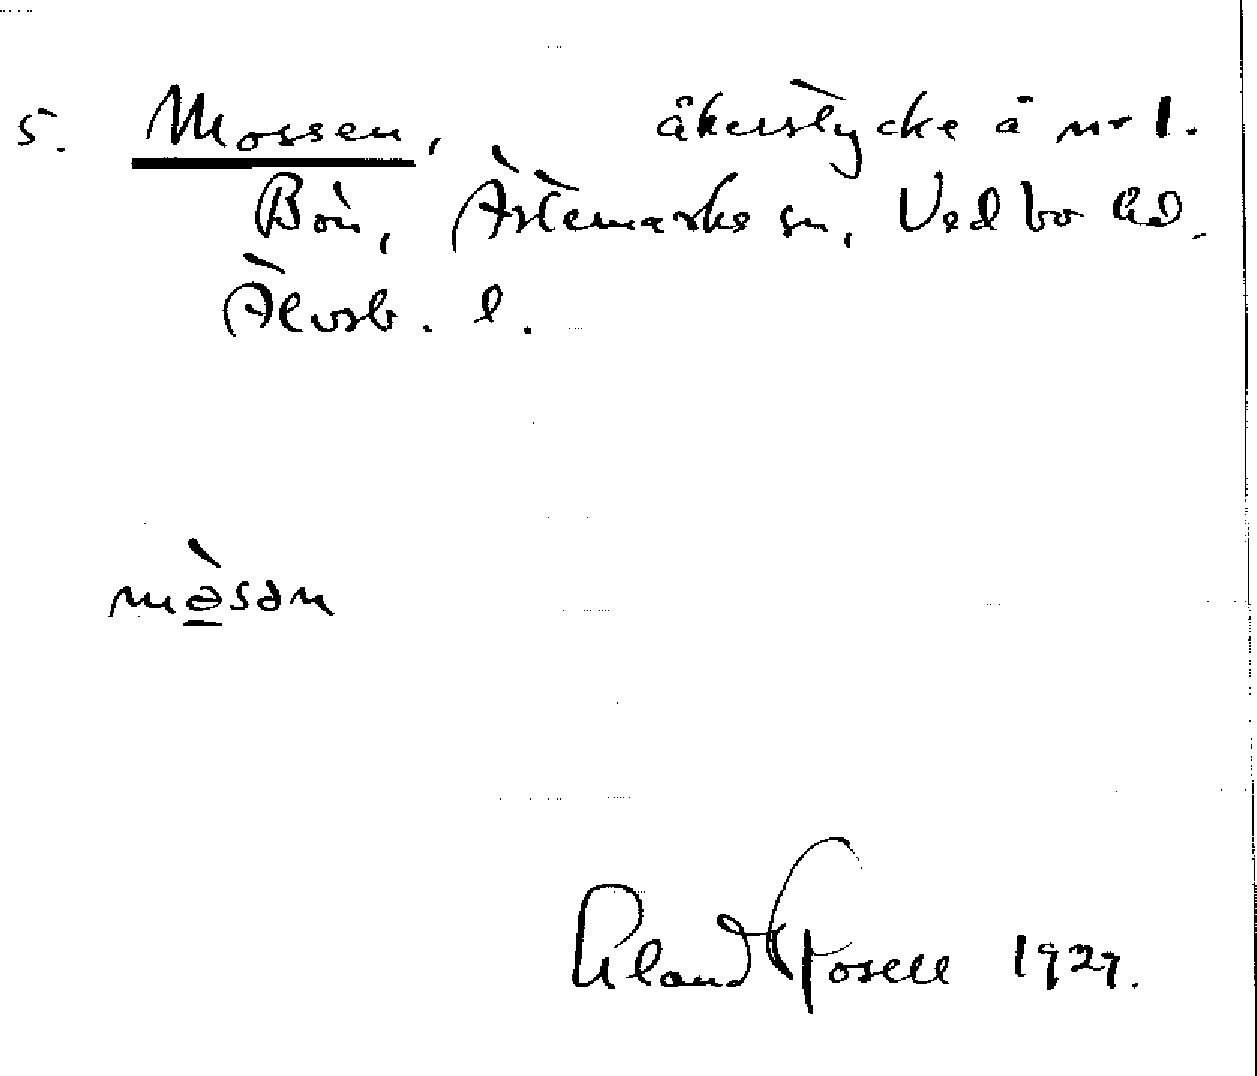 5. Mossen, åkerstycke å nr 1.
Bön, Ärtemarks sn, Vedbo hd.
Älvsb. l.
mə̀sən
Rosell 1927.